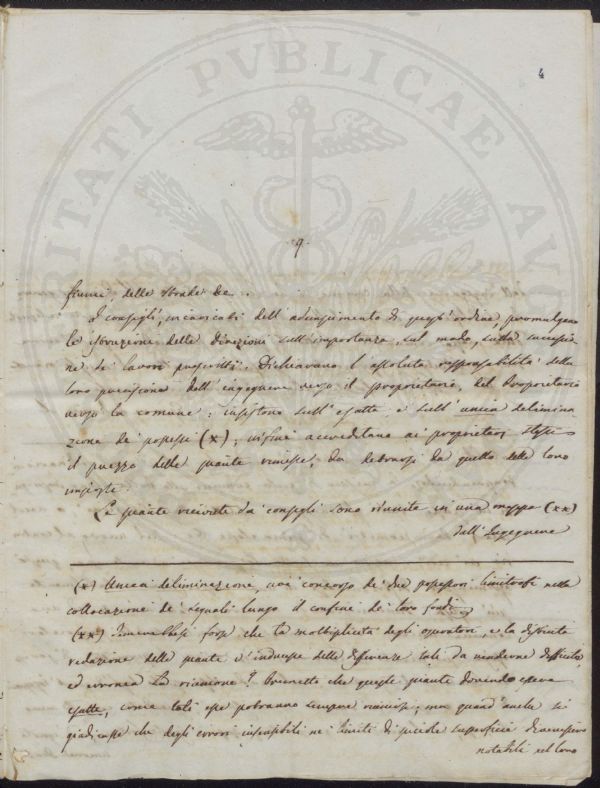 VERITATI PVBLICAE
4
9.
fiumi delle strade &c.
I consigli, incaricati dell' adempimento di quest' ordine, promulgano
le istruzione delle direzioni sull' importanza, sul modo, sulla successio
ne de' lavori prescritti. Dichiarano l' assoluta responsabilità della
loro precisione dell' ingegnere verso il proprietario, del proprietario
verso la comune; insistono sull' esatta e sull' unica delimina
zione de' possessi (x); infine accreditano ai proprietari stessi
il prezzo delle piante rimesse, da dedursi da quello delle loro
imposte.
Le piante ricevute da' consigli sono riunite in una mappa (xx)
dall' Ingegnere
(x) Unica deliminazione, cioè concorso de' due possessori limitrofi nella
collocazione de' segnali lungo il confine de' loro fondi.
(xx) Temerebbesi forse che la moltiplicità degli operatori, e la distinta
redazione delle piante v' inducesse delle differenze tali da renderne difficile,
ed erronea la riunione? che queste piante dovendo essere
esatte, come tali esse potranno sempre riunirsi; ma quand' anche si
giudicasse che degli errori insensibili ne' limiti di piccole superficie divenissero
notabili nel loro